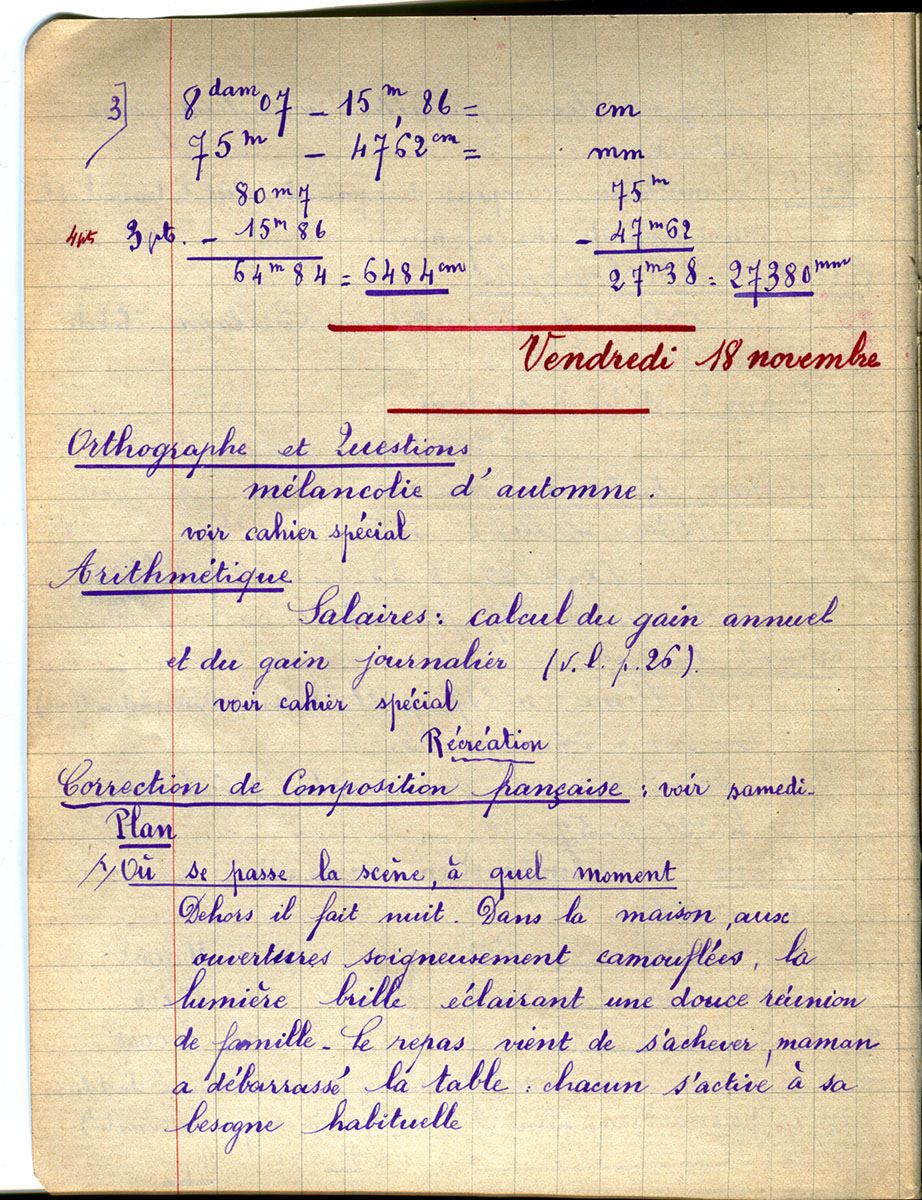 3] 8 dam 07 _ 15 m, 86 = cm
75 m _ 4762 cm = mm
80 m 7 75 m
4 pts 3 pts. - 15 m 86 - 47 m 62
64 m 84 = 6484 cm 27 m 38 = 27380 mm
Vendredi 18 novembre
Orthographe et Questions
mélancolie d'automne.
voir cahier spécial
Arithmétique
Salaires : calcul du gain annuel
et du gain journalier (v. l. p. 26).
voir cahier spécial
Récréation
Correction de Composition française : voir samedi.
Plan
1) Où se passe la scène, à quel moment
Dehors il fait nuit. Dans la maison, aux
ouvertures soigneusement camouflées, la
lumière brille éclairant une douce réunion
de famille _ Le repas vient de s'achever, maman
a débarrassé la table : chacun s'active à sa
besogne habituelle